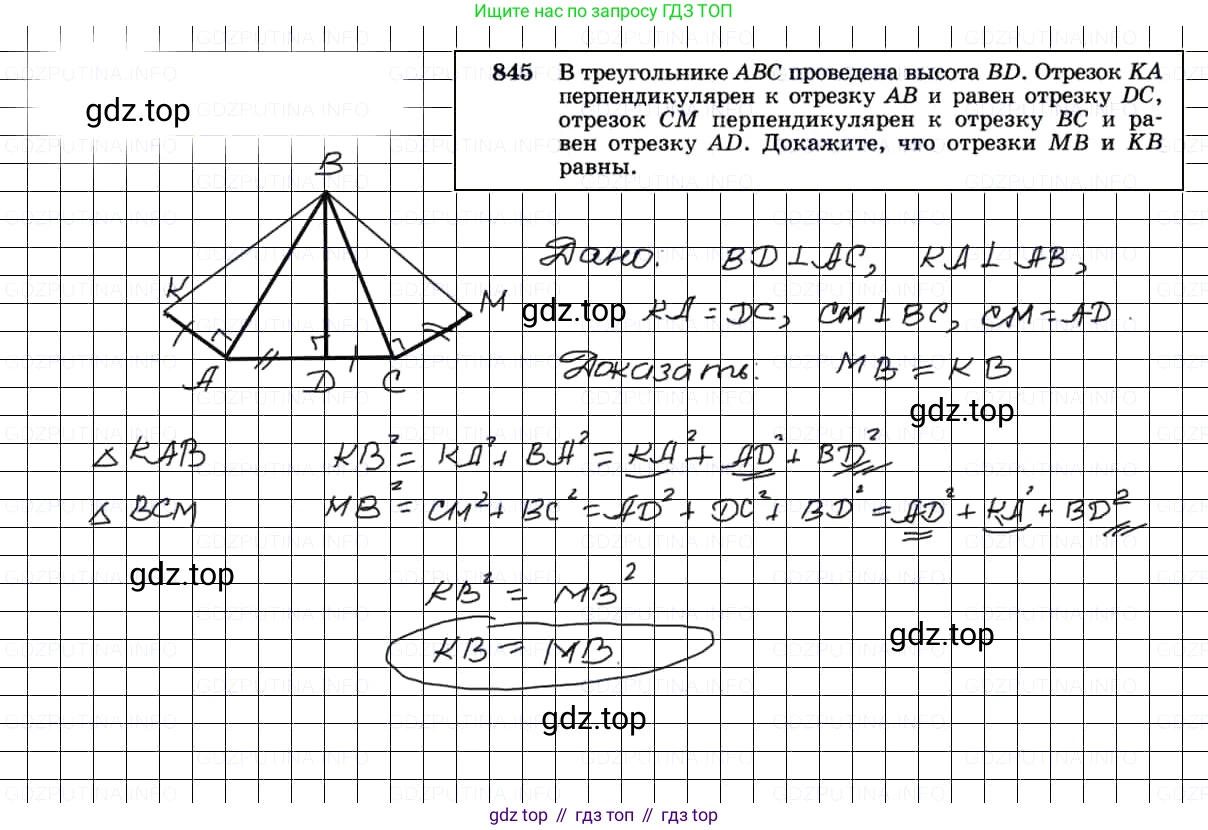 Ищите нас по запросу ГДЗ ТОП
845 В треугольнике ABC проведена высота BD. Отрезок KA
перпендикулярен к отрезку AB и равен отрезку DC,
отрезок CM перпендикулярен к отрезку BC и ра-
вен отрезку AD. Докажите, что отрезки MB и KB
равны.
gdz.top
B
K
M
A
D
C
Дано: BD ⊥ AC, KA ⊥ AB,
gdz.top
KA = DC, CM ⊥ BC, CM = AD.
Доказать: MB = KB
gdz.top
△ KAB KB² = KA² + BA² = KA² + AD² + BD²
△ BCM MB² = CM² + BC² = AD² + DC² + BD² = AD² + KA² + BD²
gdz.top
KB² = MB²
gdz.top
KB = MB.
gdz.top
gdz top // гдз топ // гдз top